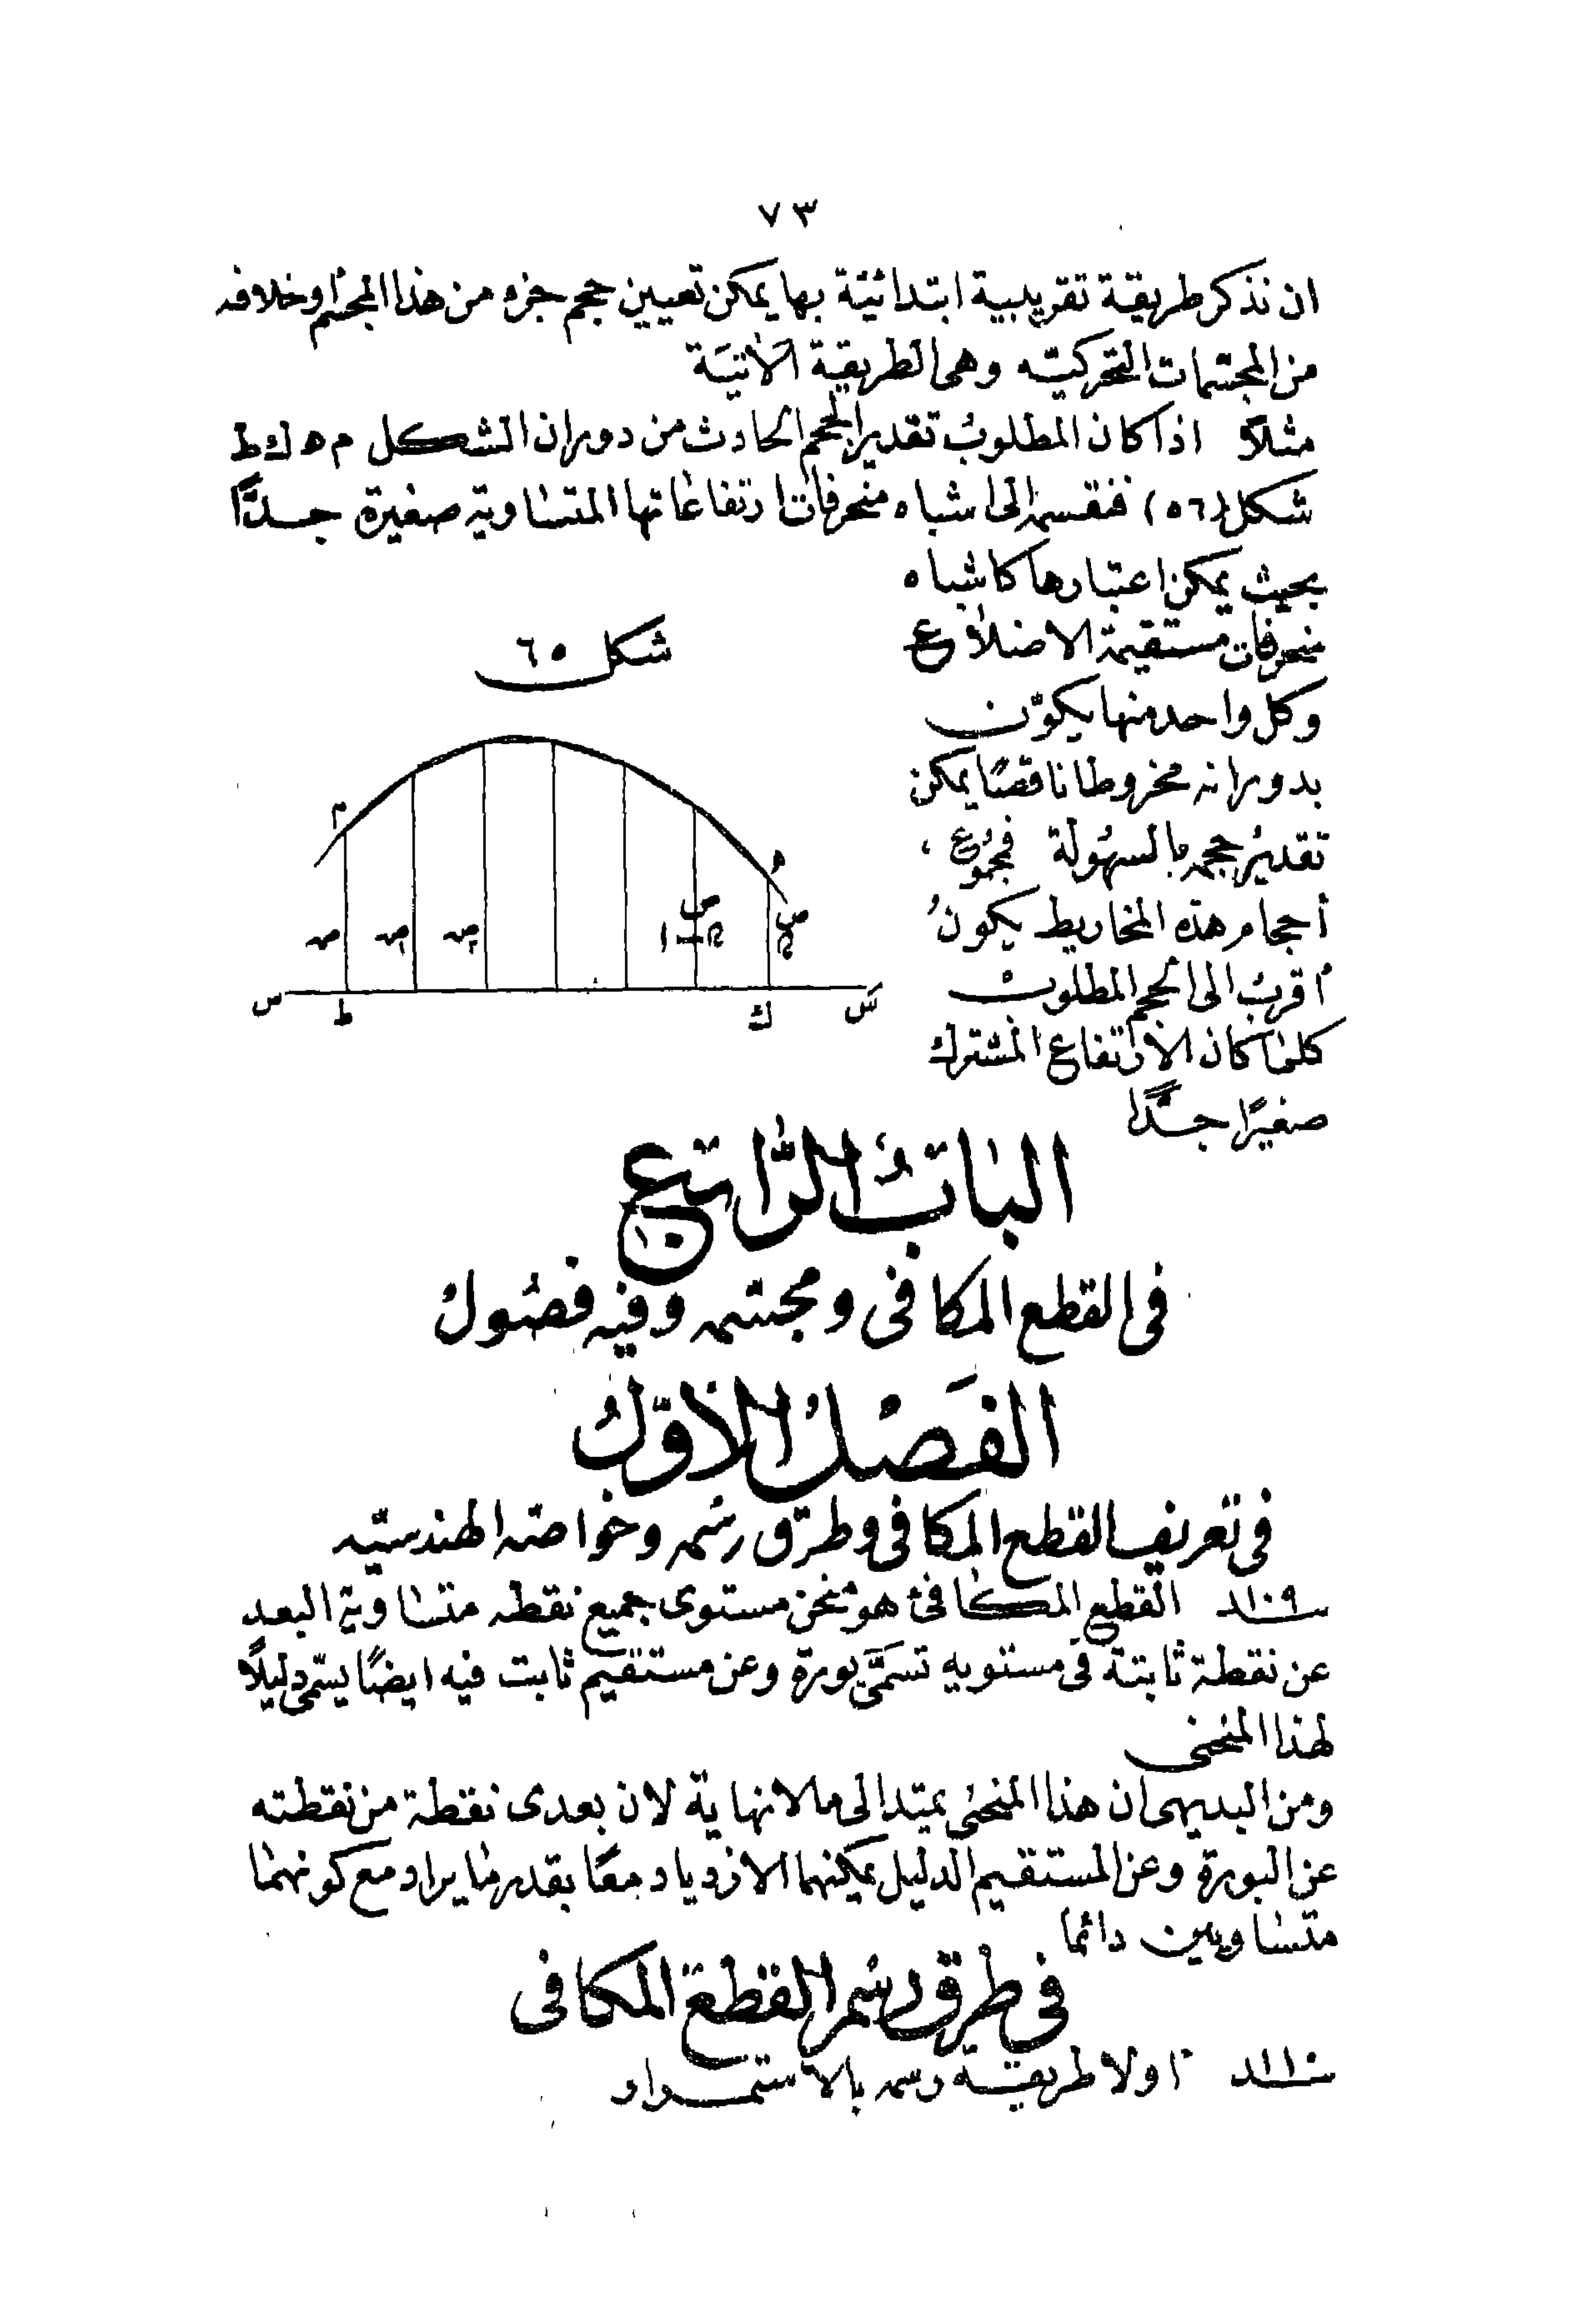 ٧٣
ان نذكر طريقة تقريبية ابتدائية بها يمكن تعيين حجم جزء من هذا المجسم او خلافه
من المجسمات التحركيه وهى الطريقة الآتية
مثلاً اذا كان المطلوب تقدير الحجم الحادث من دوران الشكل م ه ك ط
شكل (٥٦) فنقسمه الى اشباه منحرفات ارتفاعاتها المتساوية صغيرة جداً
بحيث يمكن اعتبارها كاشباه
منحرفات مستقيمة الاضلاع
وكل واحد منها يكوّن
بدورانه مخروطا ناقصًا يمكن
تقدير حجمه بالسهولة فمجموع
أحجام هذه المخاريط يكون
أقرب الى الحجم المطلوب
كلما كان الارتفاع المشترك
صغيرًا جدًا
شكل ٥٦
م
ه
ص ص ص ص ص
س ط ك سَ
الباب الرّابع
فى القطع المكافى ومجسمه وفيه فصول
الفَصْلُ الاوّل
فى تعريف القطع المكافى وطرق رسمه وخواصه الهندسيّه
١٠٩ القطع المكافئ هو منحن مستوى جميع نقطه متساوية البعد
عن نقطة ثابتة فى مستويه تسمَّى بورة وعن مستقيم ثابت فيه ايضًا يسمّى دليلًا
لهذا المنحنى
ومن البديهى ان هذا المنحنى يمتد الى ما لا نهاية لان بعدى نقطة من نقطته
عن البورة وعن المستقيم الدليل يمكنهما الازدياد معًا بقدر ما يراد مع كونهما
متساويين دائما
فى طرق رسم القطع المكافى
١١٠ اولا طريقة رسمه بالاستمرار